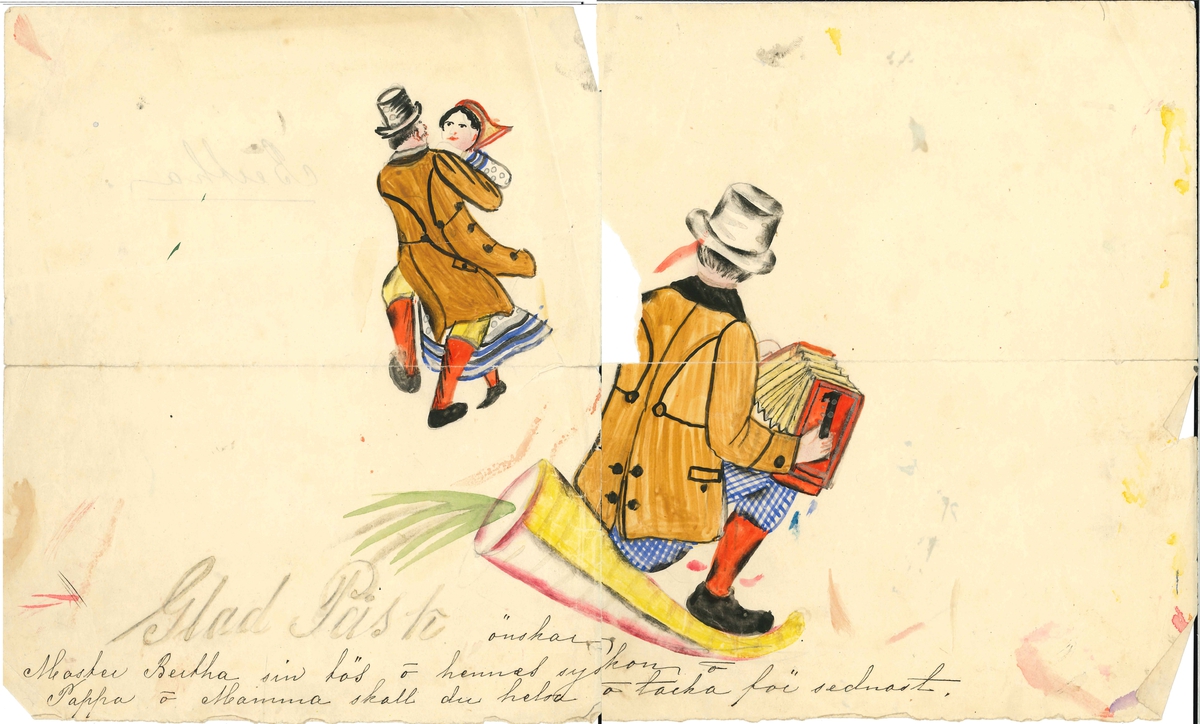 Bertha.
1
Glad Påsk
önskar
Moster Bertha sin tös o hennes syskon o
Pappa o Mamma skall du helsa o tacka för sednast.